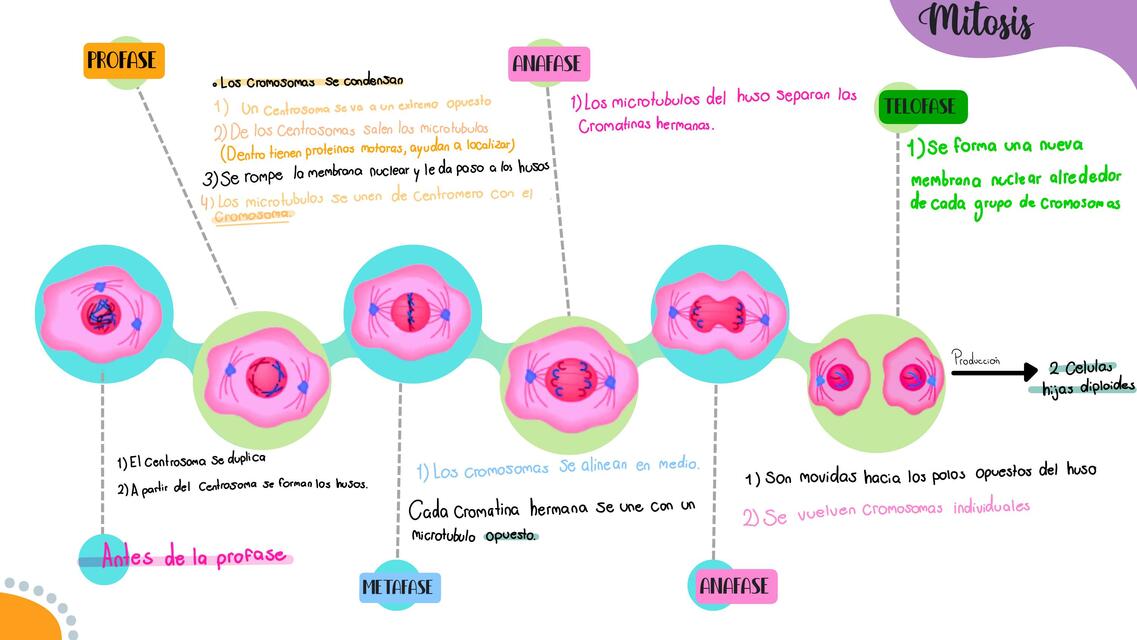 Mitosis
PROFASE
• Los Cromosomas se condensan
1) Un Centrosoma se va a un extremo opuesto
2) De los Centrosomas salen los microtubulos
(Dentro tienen proteinas motoras, ayudan a localizar)
3) Se rompe la membrana nuclear y le da paso a los husos
4) Los microtubulos se unen de Centromero con el
Cromosoma.
ANAFASE
1) Los microtubulos del huso separan las
Cromatinas hermanas.
TELOFASE
1) Se forma una nueva
membrana nuclear alrededor
de cada grupo de Cromosomas
Producción
2 Celulas
hijas diploides
1) El Centrosoma se duplica
2) A partir del Centrosoma se forman los husos.
Antes de la profase
1) Los Cromosomas se alinean en medio.
Cada Cromatina hermana se une con un
microtubulo opuesto.
METAFASE
1) Son movidas hacia los polos opuestos del huso
2) Se vuelven Cromosomas individuales
ANAFASE